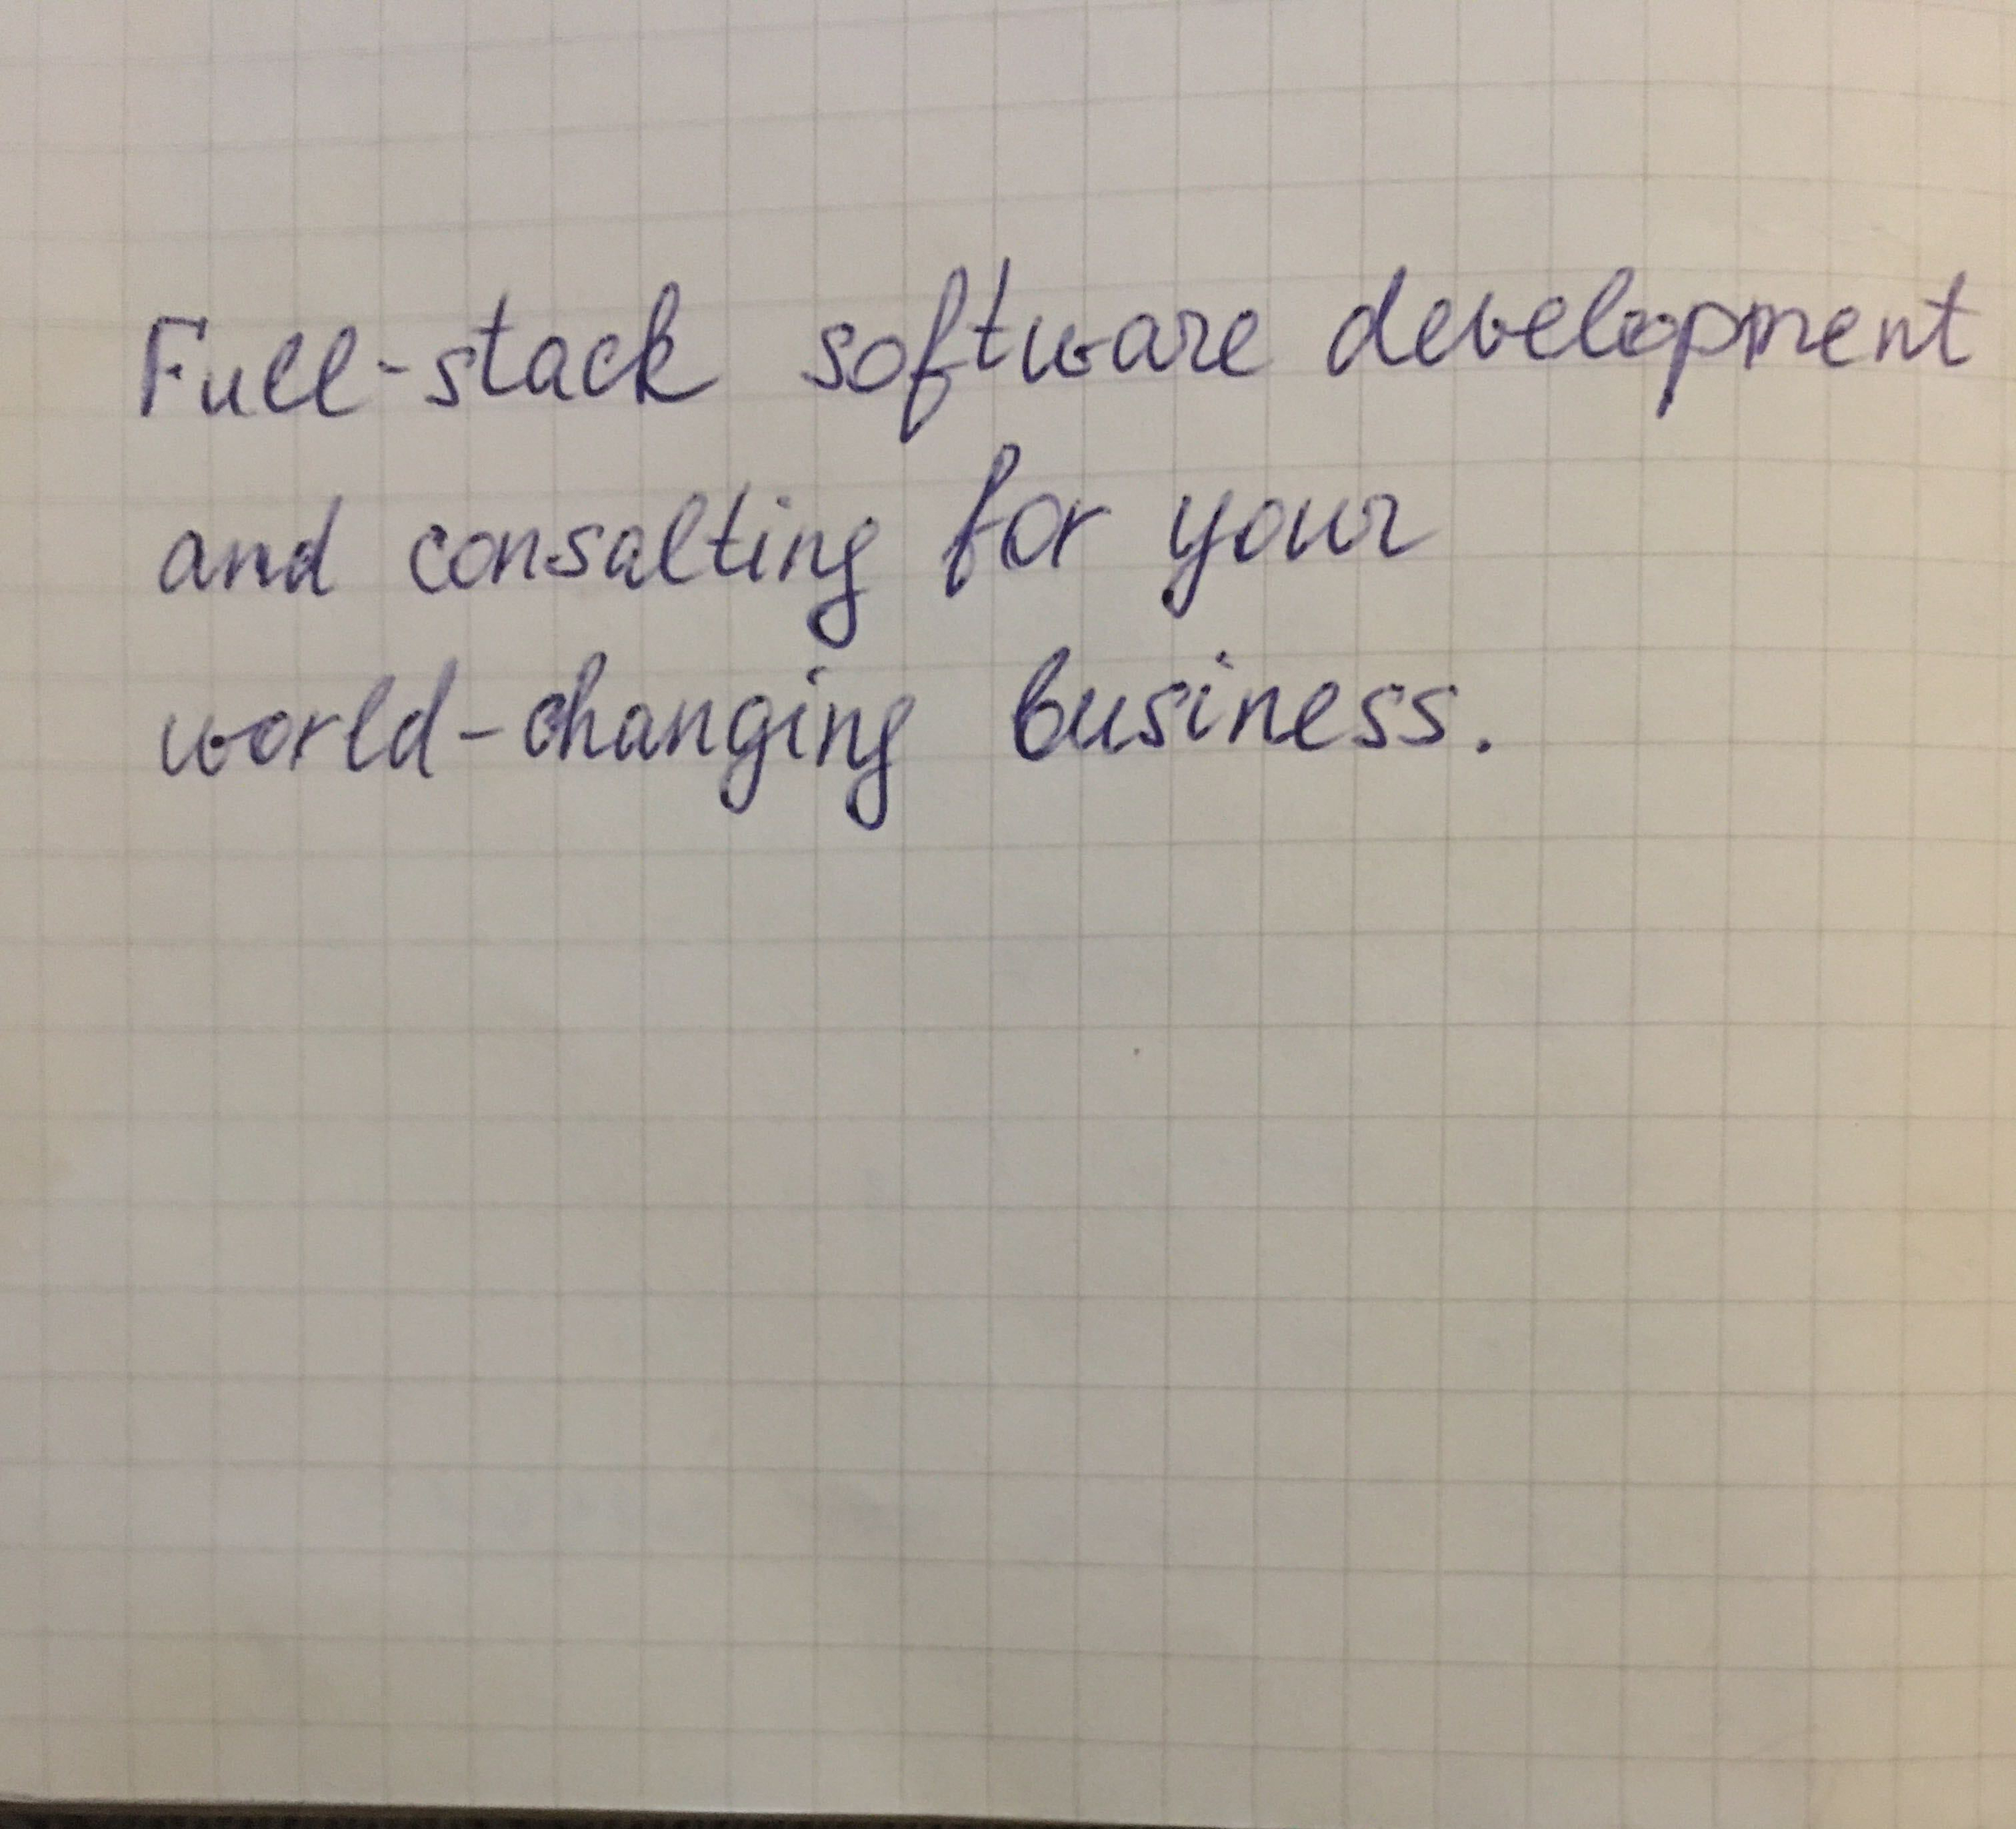 Full-stack software development
and consalting for your
world-changing business.